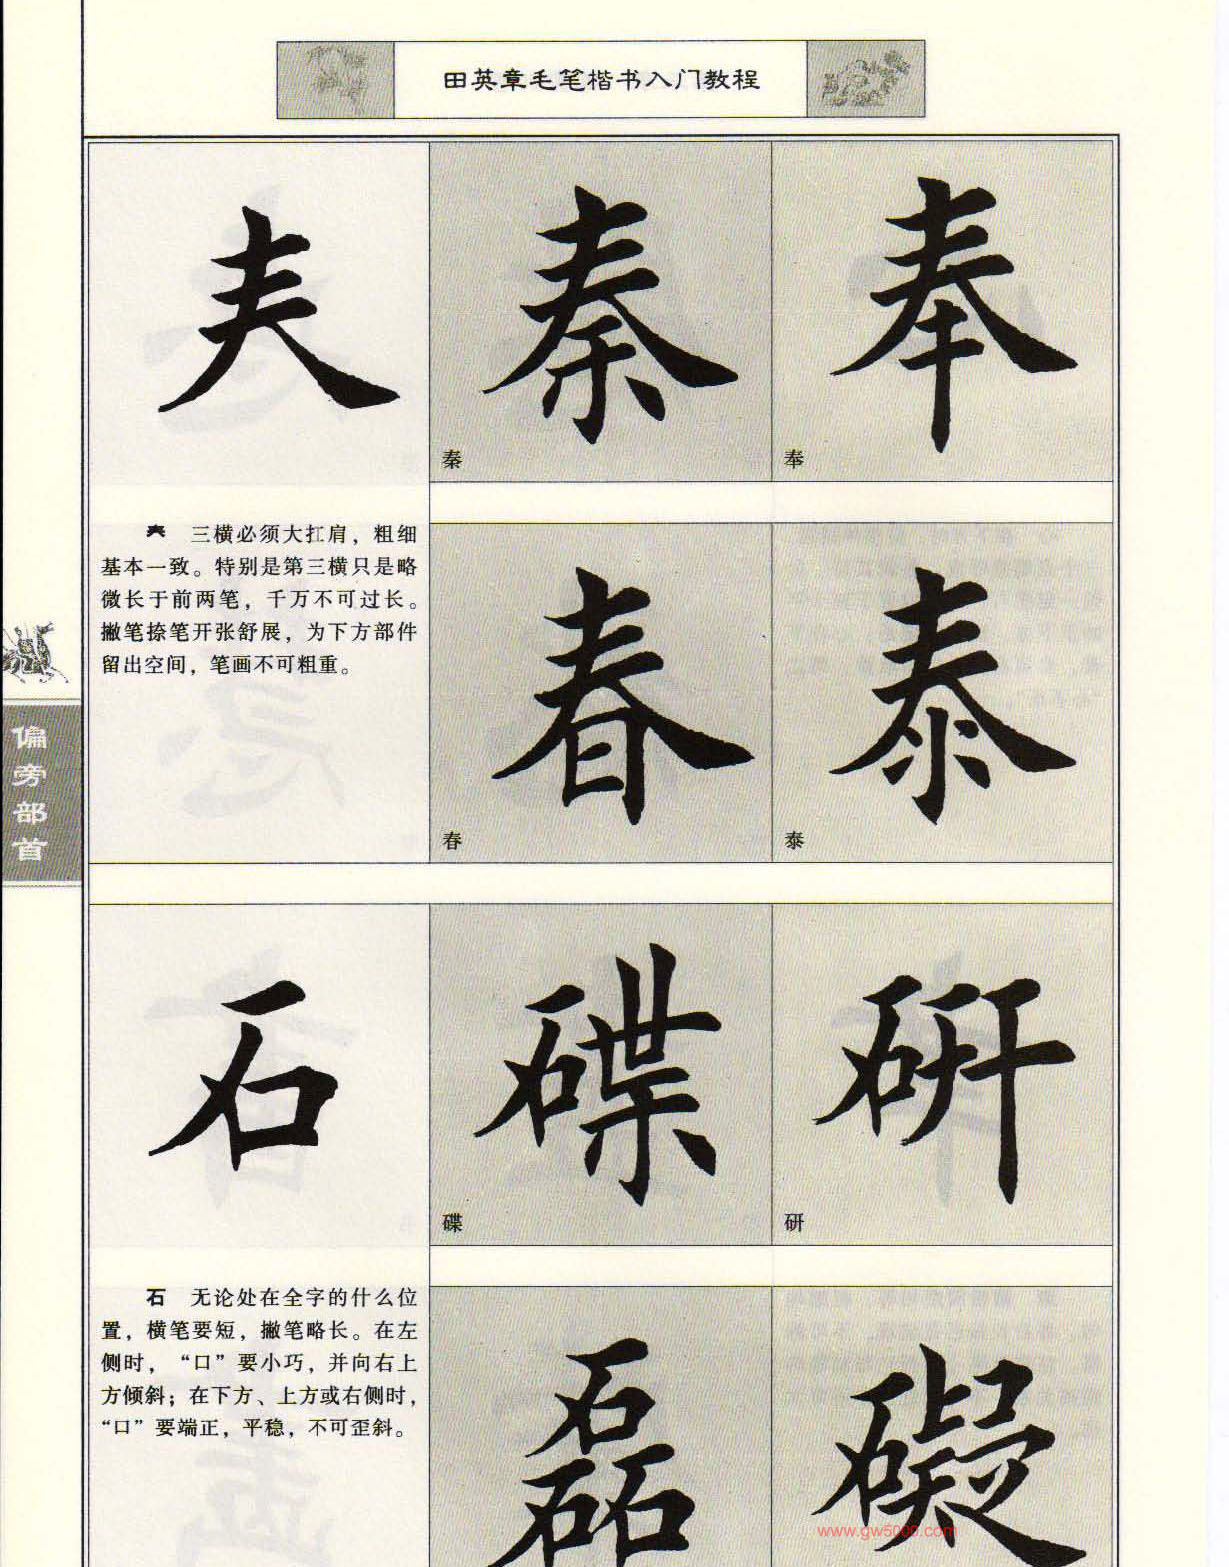 田英章毛笔楷书入门教程
𡗗 秦 奉
秦 奉
𡗗 三横必须大扛肩，粗细
基本一致。特别是第三横只是略
微长于前两笔，千万不可过长。
撇笔捺笔开张舒展，为下方部件
留出空间，笔画不可粗重。
春 泰
春 泰
偏旁部首
石 碟 研
碟 研
石 无论处在全字的什么位
置，横笔要短，撇笔略长。在左
侧时，“口”要小巧，并向右上
方倾斜；在下方、上方或右侧时，
“口”要端正，平稳，不可歪斜。
磊 礙
www.gw5000.com